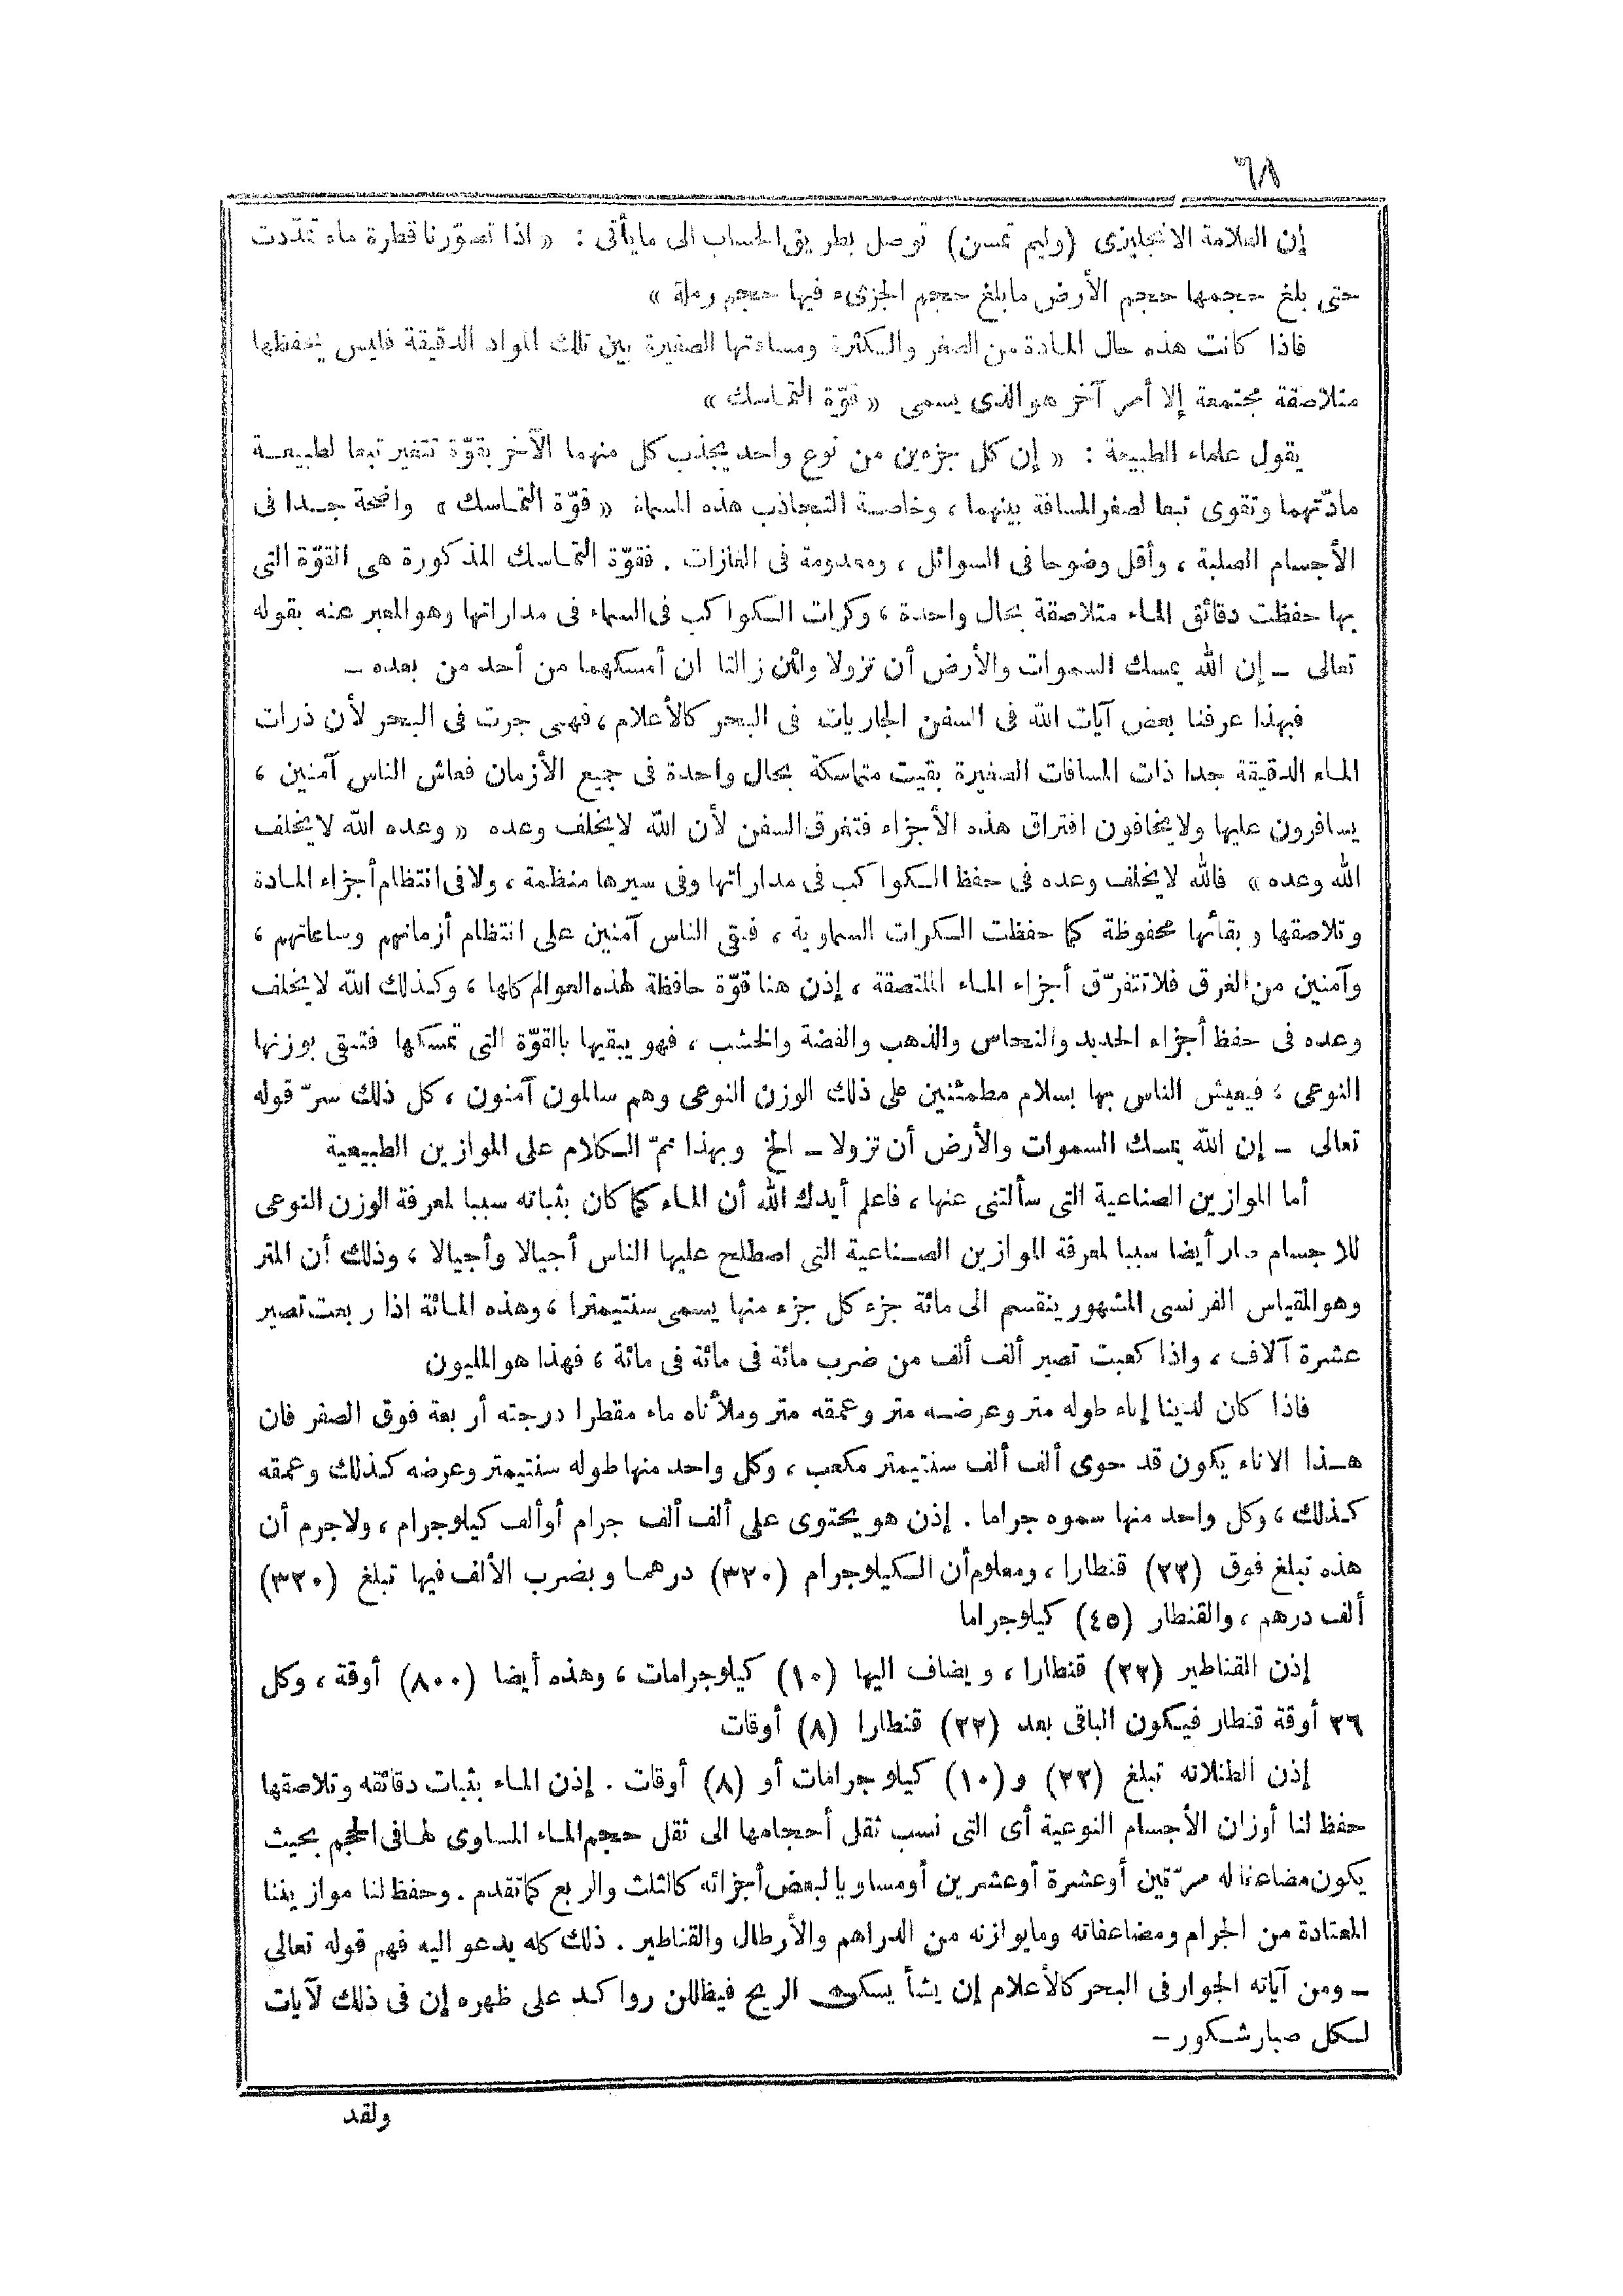 ٦٨
إن العلامة الانجليزى (وليم تمسن) توصل بطريق الحساب الى مايأتى : « اذا تصوّرنا قطرة ماء تمدّدت
حتى بلغ حجمها حجم الأرض ما بلغ حجم الجزىء فيها حجم رملة »
فاذا كانت هذه حال المادة من الصغر والكثرة ومسافتها الصغيرة بين تلك المواد الدقيقة فليس يحفظها
متلاصقة مجتمعة إلا أمر آخر هو الذى يسمى « قوّة التماسك »
يقول علماء الطبيعة : « إن كل جزءين من نوع واحد يجذب كل منهما الآخر بقوّة تتغير تبعا لطبيعة
مادّتهما وتقوى تبعا لصغر المسافة بينهما ، وخاصة التجاذب هذه المسماة « قوّة التماسك » واضحة جدا فى
الأجسام الصلبة ، وأقل وضوحا فى السوائل ، ومعدومة فى الغازات . فقوّة التماسك المذكورة هى القوّة التى
بها حفظت دقائق الماء متلاصقة بحال واحدة ، وكرات الكواكب فى السماء فى مداراتها وهو المعبر عنه بقوله
تعالى - إن الله يمسك السموات والأرض أن تزولا ولئن زالتا ان أمسكهما من أحد من بعده -
فبهذا عرفنا بعض آيات الله فى السفن الجاريات فى البحر كالأعلام ، فهى جرت فى البحر لأن ذرات
الماء الدقيقة جدا ذات المسافات الصغيرة بقيت متماسكة بحال واحدة فى جميع الأزمان فعاش الناس آمنين ،
يسافرون عليها ولا يخافون افتراق هذه الأجزاء فتغرق السفن لأن الله لا يخلف وعده « وعده الله لا يخلف
الله وعده » فالله لا يخلف وعده فى حفظ الكواكب فى مداراتها وفى سيرها منظمة ، ولا فى انتظام أجزاء المادة
وتلاصقها وبقائها محفوظة كما حفظت الكرات السماوية ، فبقى الناس آمنين على انتظام أزمانهم وساعاتهم ،
وآمنين من الغرق فلا تتفرّق أجزاء الماء الملتصقة ، إذن هنا قوّة حافظة لهذه العوالم كلها ، وكذلك الله لا يخلف
وعده فى حفظ أجزاء الحديد والنحاس والذهب والفضة والخشب ، فهو يبقيها بالقوّة التى تمسكها فتبقى بوزنها
النوعى ، فيعيش الناس بها بسلام مطمئنين على ذلك الوزن النوعى وهم سالمون آمنون ، كل ذلك سرّ قوله
تعالى - إن الله يمسك السموات والأرض أن تزولا - الخ وبهذا تمّ الكلام على الموازين الطبيعية
أما الموازين الصناعية التى سألتنى عنها ، فاعلم أيدك الله أن الماء كما كان بثباته سببا لمعرفة الوزن النوعى
للأجسام صار أيضا سببا لمعرفة الموازين الصناعية التى اصطلح عليها الناس أجيالا وأجيالا ، وذلك أن المتر
وهو المقياس الفرنسى المشهور ينقسم الى مائة جزء كل جزء منها يسمى سنتيمترا ، وهذه المائة اذا ربعت تصير
عشرة آلاف ، واذا كعبت تصير ألف ألف من ضرب مائة فى مائة فى مائة ، فهذا هو المليون
فاذا كان لدينا إناء طوله متر وعرضه متر وعمقه متر وملأناه ماء مقطرا درجته أربعة فوق الصفر فان
هذا الاناء يكون قد حوى ألف ألف سنتيمتر مكعب ، وكل واحد منها طوله سنتيمتر وعرضه كذلك وعمقه
كذلك ، وكل واحد منها سموه جراما . إذن هو يحتوى على ألف ألف جرام أو ألف كيلوجرام ، ولاجرم أن
هذه تبلغ فوق (٢٢) قنطارا ، ومعلوم أن الكيلوجرام (٣٢٠) درهما وبضرب الألف فيها تبلغ (٣٢٠)
ألف درهم ، والقنطار (٤٥) كيلوجراما
إذن القناطير (٢٢) قنطارا ، ويضاف اليها (١٠) كيلوجرامات ، وهذه أيضا (٨٠٠) أوقة ، وكل
٣٦ أوقة قنطار فيكون الباقى بعد (٢٢) قنطارا (٨) أوقات
إذن الطنلاته تبلغ (٢٢) و (١٠) كيلوجرامات أو (٨) أوقات . إذن الماء بثبات دقائقه وتلاصقها
حفظ لنا أوزان الأجسام النوعية أى التى نسب ثقل أحجامها الى ثقل حجم الماء المساوى لها فى الحجم بحيث
يكون مضاعفا له مرّتين أو عشرة أو عشرين أو مساويا لبعض أجزائه كالثلث والربع كما تقدم . وحفظ لنا موازيننا
المعتادة من الجرام ومضاعفاته ومايوازنه من الدراهم والأرطال والقناطير . ذلك كله يدعو اليه فهم قوله تعالى
- ومن آياته الجوار فى البحر كالأعلام إن يشأ يسكن الريح فيظللن رواكد على ظهره إن فى ذلك لآيات
لكل صبار شكور -
ولقد